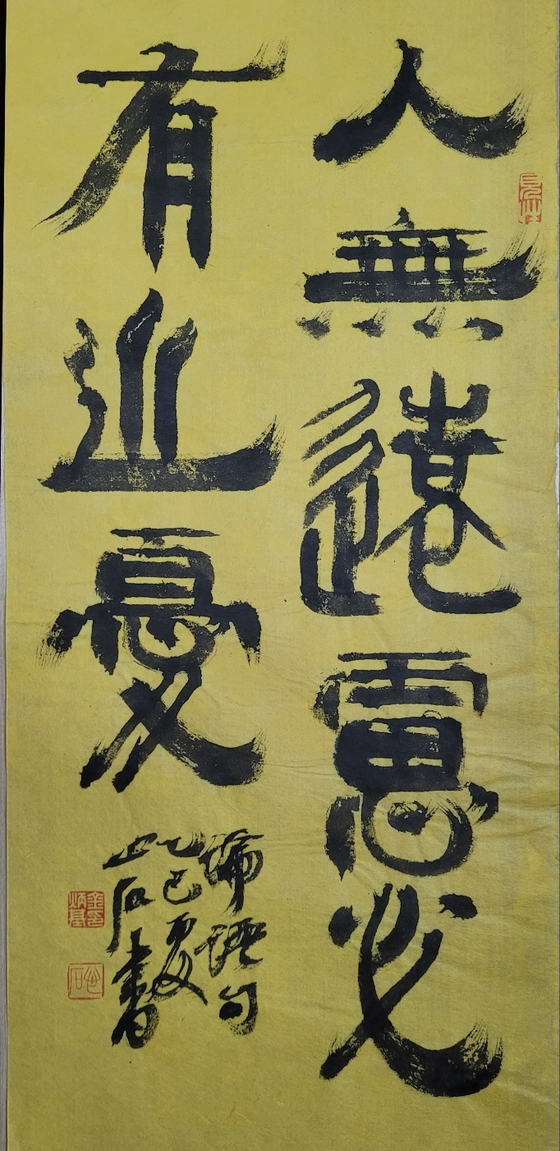 人無遠慮必
有近憂
論語句
乙巳夏
石書